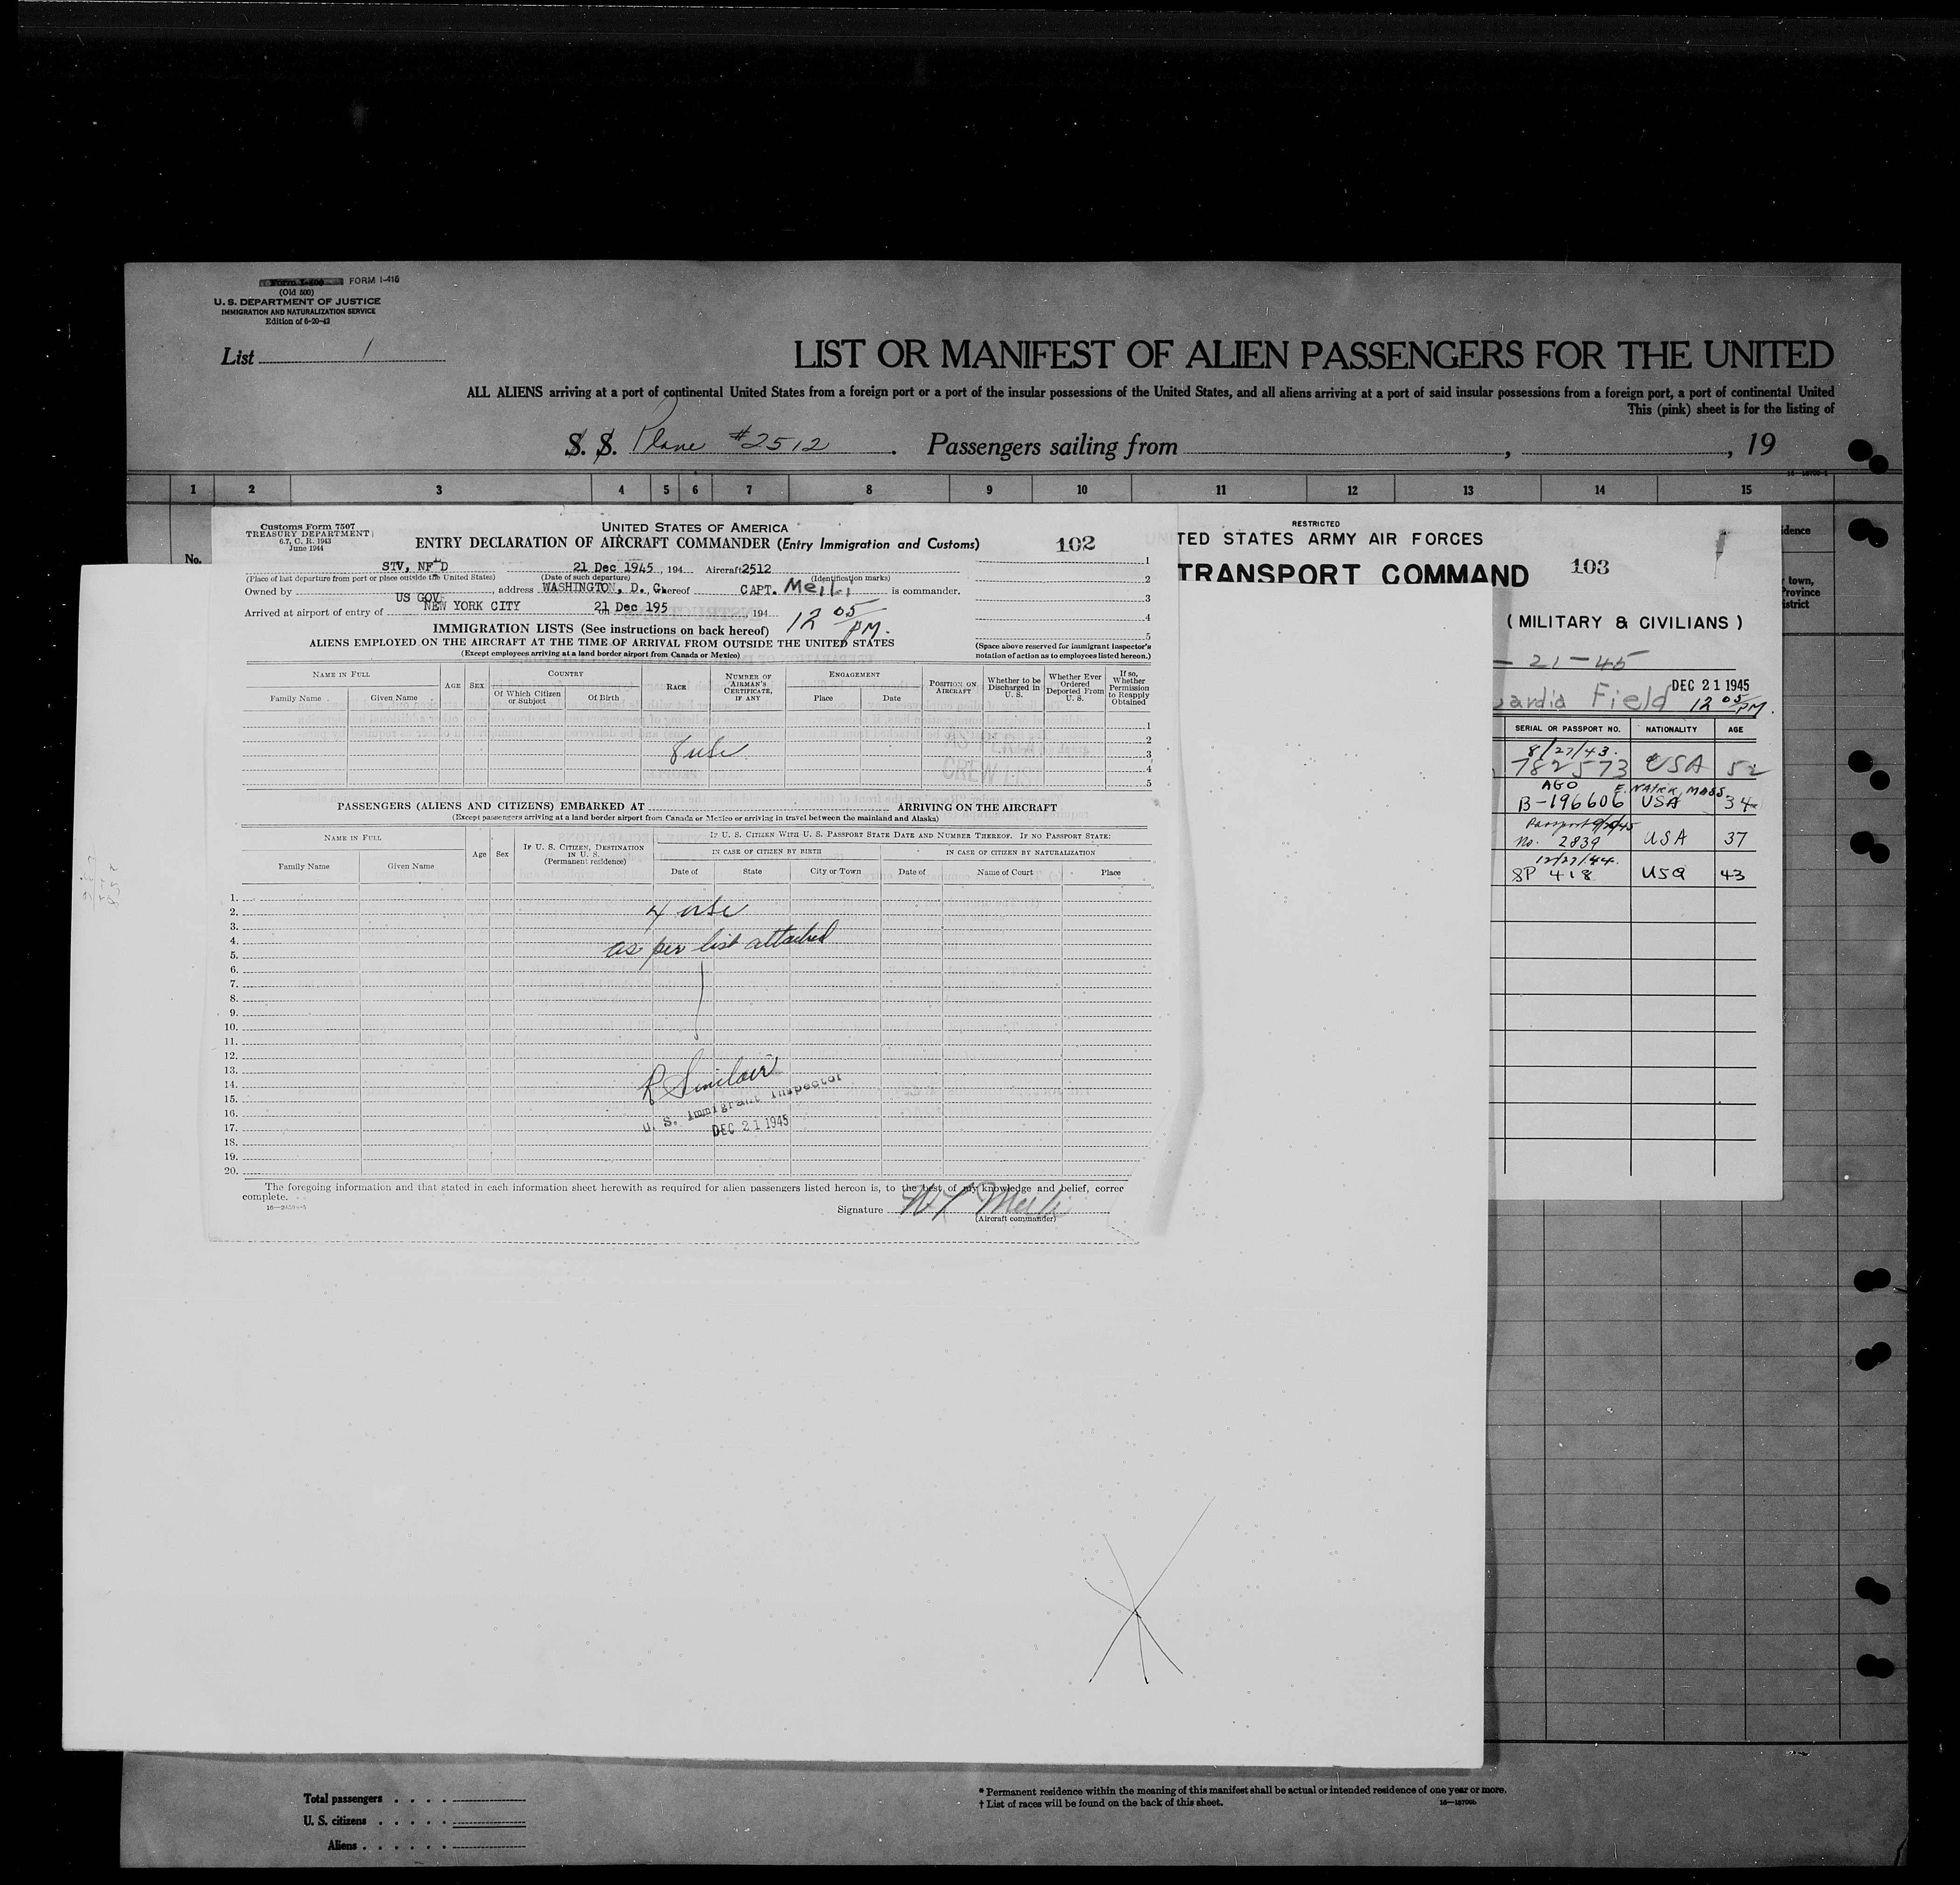 Form I-400 FORM I-416
(Old 500)
U. S. DEPARTMENT OF JUSTICE
IMMIGRATION AND NATURALIZATION SERVICE
Edition of 6-20-43
List 1
LIST OR MANIFEST OF ALIEN PASSENGERS FOR THE UNITED
ALL ALIENS arriving at a port of continental United States from a foreign port or a port of the insular possessions of the United States, and all aliens arriving at a port of said insular possessions from a foreign port, a port of continental United
This (pink) sheet is for the listing of
S. S. Plane #2512. Passengers sailing from , , 19
1 2 3 4 5 6 7 8 9 10 11 12 13 14 15
No.
idence
town,
Province
istrict
Customs Form 7507
TREASURY DEPARTMENT
6.7, C. R. 1943
June 1944
UNITED STATES OF AMERICA
ENTRY DECLARATION OF AIRCRAFT COMMANDER (Entry Immigration and Customs)
102
STV, NF'D 21 Dec 1945, 194 Aircraft 2512
(Place of last departure from port or place outside the United States) (Date of such departure) (Identification marks)
Owned by US GOV, address WASHINGTON, D. C, hereof CAPT. Meili is commander.
Arrived at airport of entry of NEW YORK CITY on 21 Dec 195 194 12 05 PM.
1
2
3
4
5
IMMIGRATION LISTS (See instructions on back hereof)
ALIENS EMPLOYED ON THE AIRCRAFT AT THE TIME OF ARRIVAL FROM OUTSIDE THE UNITED STATES
(Except employees arriving at a land border airport from Canada or Mexico)
(Space above reserved for immigrant inspector's
notation of action as to employees listed hereon.)
NAME IN FULL
Family Name Given Name
AGE SEX
COUNTRY
Of Which Citizen or Subject Of Birth
RACE
NUMBER OF AIRMAN'S CERTIFICATE, IF ANY
ENGAGEMENT
Place Date
POSITION ON AIRCRAFT
Whether to be Discharged in U. S.
Whether Ever Ordered Deported From U. S.
If so, Whether Permission to Reapply Obtained
1
2
3
4
5
8 usc
AS PER
CREW LIST
PASSENGERS (ALIENS AND CITIZENS) EMBARKED AT ARRIVING ON THE AIRCRAFT
(Except passengers arriving at a land border airport from Canada or Mexico or arriving in travel between the mainland and Alaska)
NAME IN FULL
Family Name Given Name
Age Sex
IF U. S. CITIZEN, DESTINATION IN U. S. (Permanent residence)
IF U. S. CITIZEN WITH U. S. PASSPORT STATE DATE AND NUMBER THEREOF. IF NO PASSPORT STATE:
IN CASE OF CITIZEN BY BIRTH IN CASE OF CITIZEN BY NATURALIZATION
Date of State City or Town Date of Name of Court Place
1.
2.
3.
4.
5.
6.
7.
8.
9.
10.
11.
12.
13.
14.
15.
16.
17.
18.
19.
20.
4 usc
as per list attached
R Sinclair
U. S. Immigrant Inspector
DEC 21 1945
The foregoing information and that stated in each information sheet herewith as required for alien passengers listed hereon is, to the best of my knowledge and belief, correc
complete.
Signature
(Aircraft commander)
RESTRICTED
TED STATES ARMY AIR FORCES
TRANSPORT COMMAND
103
(MILITARY & CIVILIANS)
- 21-45
uardia Field DEC 21 1945
12 05 PM.
SERIAL OR PASSPORT NO. NATIONALITY AGE
8/27/43.
782573 USA 52
AGO
B-196606 USA 34
Passport
No. 2839 USA 37
12/27/44.
SP 418 USA 43
Total passengers . . . .
U. S. citizens . . . . .
Aliens . . . . . .
* Permanent residence within the meaning of this manifest shall be actual or intended residence of one year or more.
† List of races will be found on the back of this sheet.